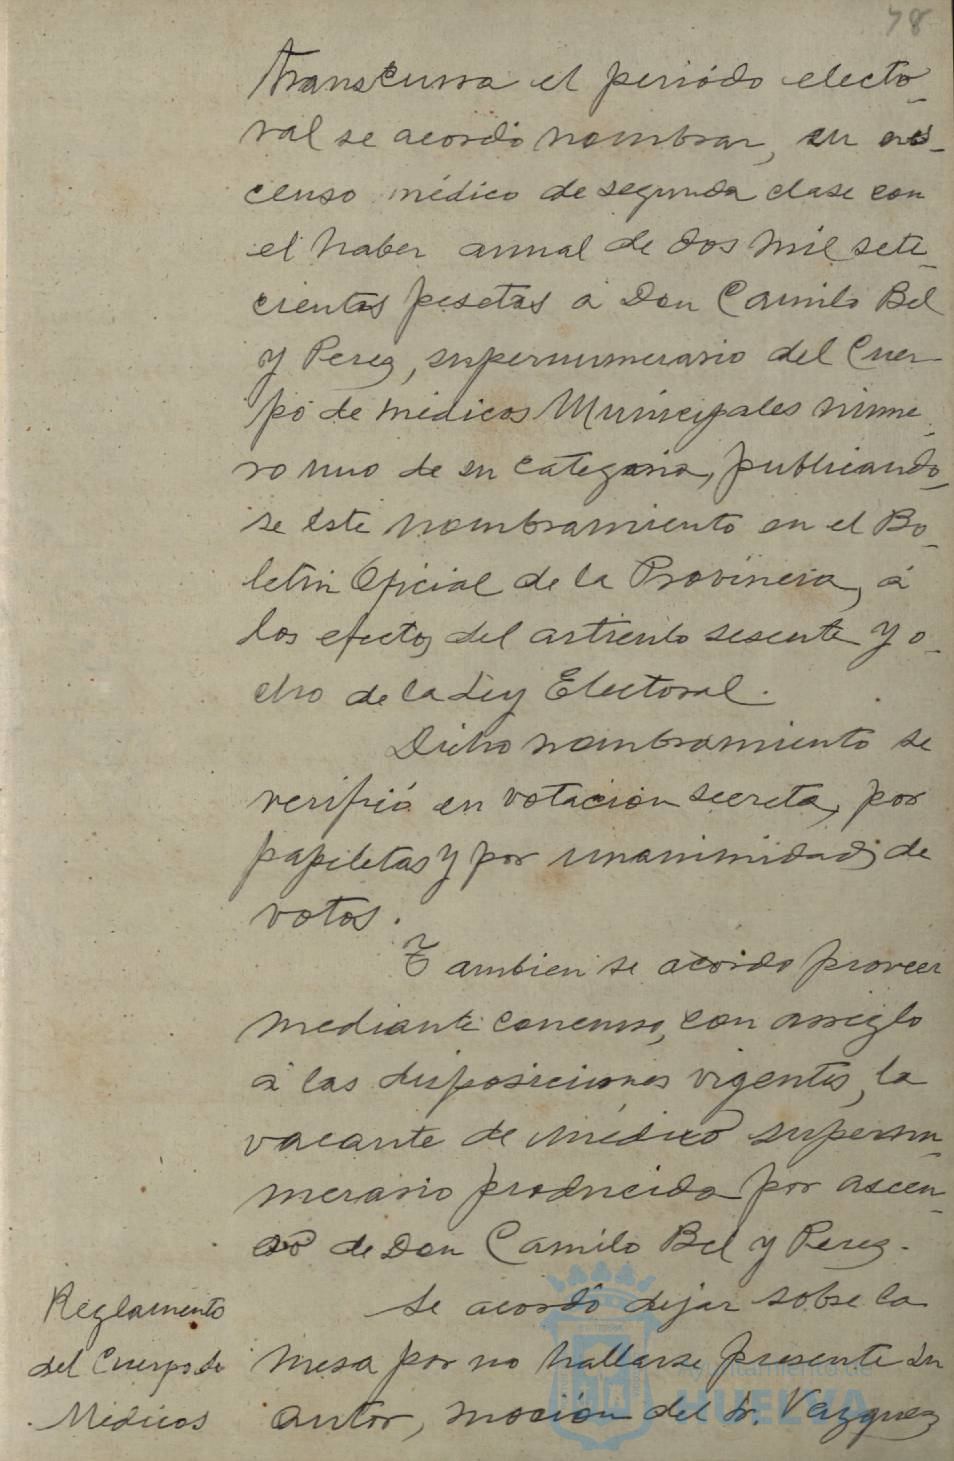 78
transcurra el periódo electo-
ral se acordó nombrar, en as-
censo médico de segunda clase con
el haber anual de dos mil sete-
cientas pesetas á Don Camilo Bel
y Perez, supernumerario del Cuer-
po de médicos Municipales núme-
ro uno de su categoria, publicando-
se este nombramiento en el Bo-
letin Oficial de la Provincia, á
los efectos del articulo sesenta y o-
cho de la Ley Electoral.
Dicho nombramiento se
verificó en votación secreta, por
papeletas y por unanimidad de
votos.
Tambien se acordo proveer
mediante concurso, con arreglo
á las disposiciones vigentes, la
vacante de médico supernu-
merario producida por ascen-
so de Don Camilo Bel y Perez.
Reglamento
del Cuerpo de
Medicos
Se acordó dejar sobre la
mesa por no hallarse presente su
autor, moción del Sr. Vazquez
Ayuntamiento de
HUELVA